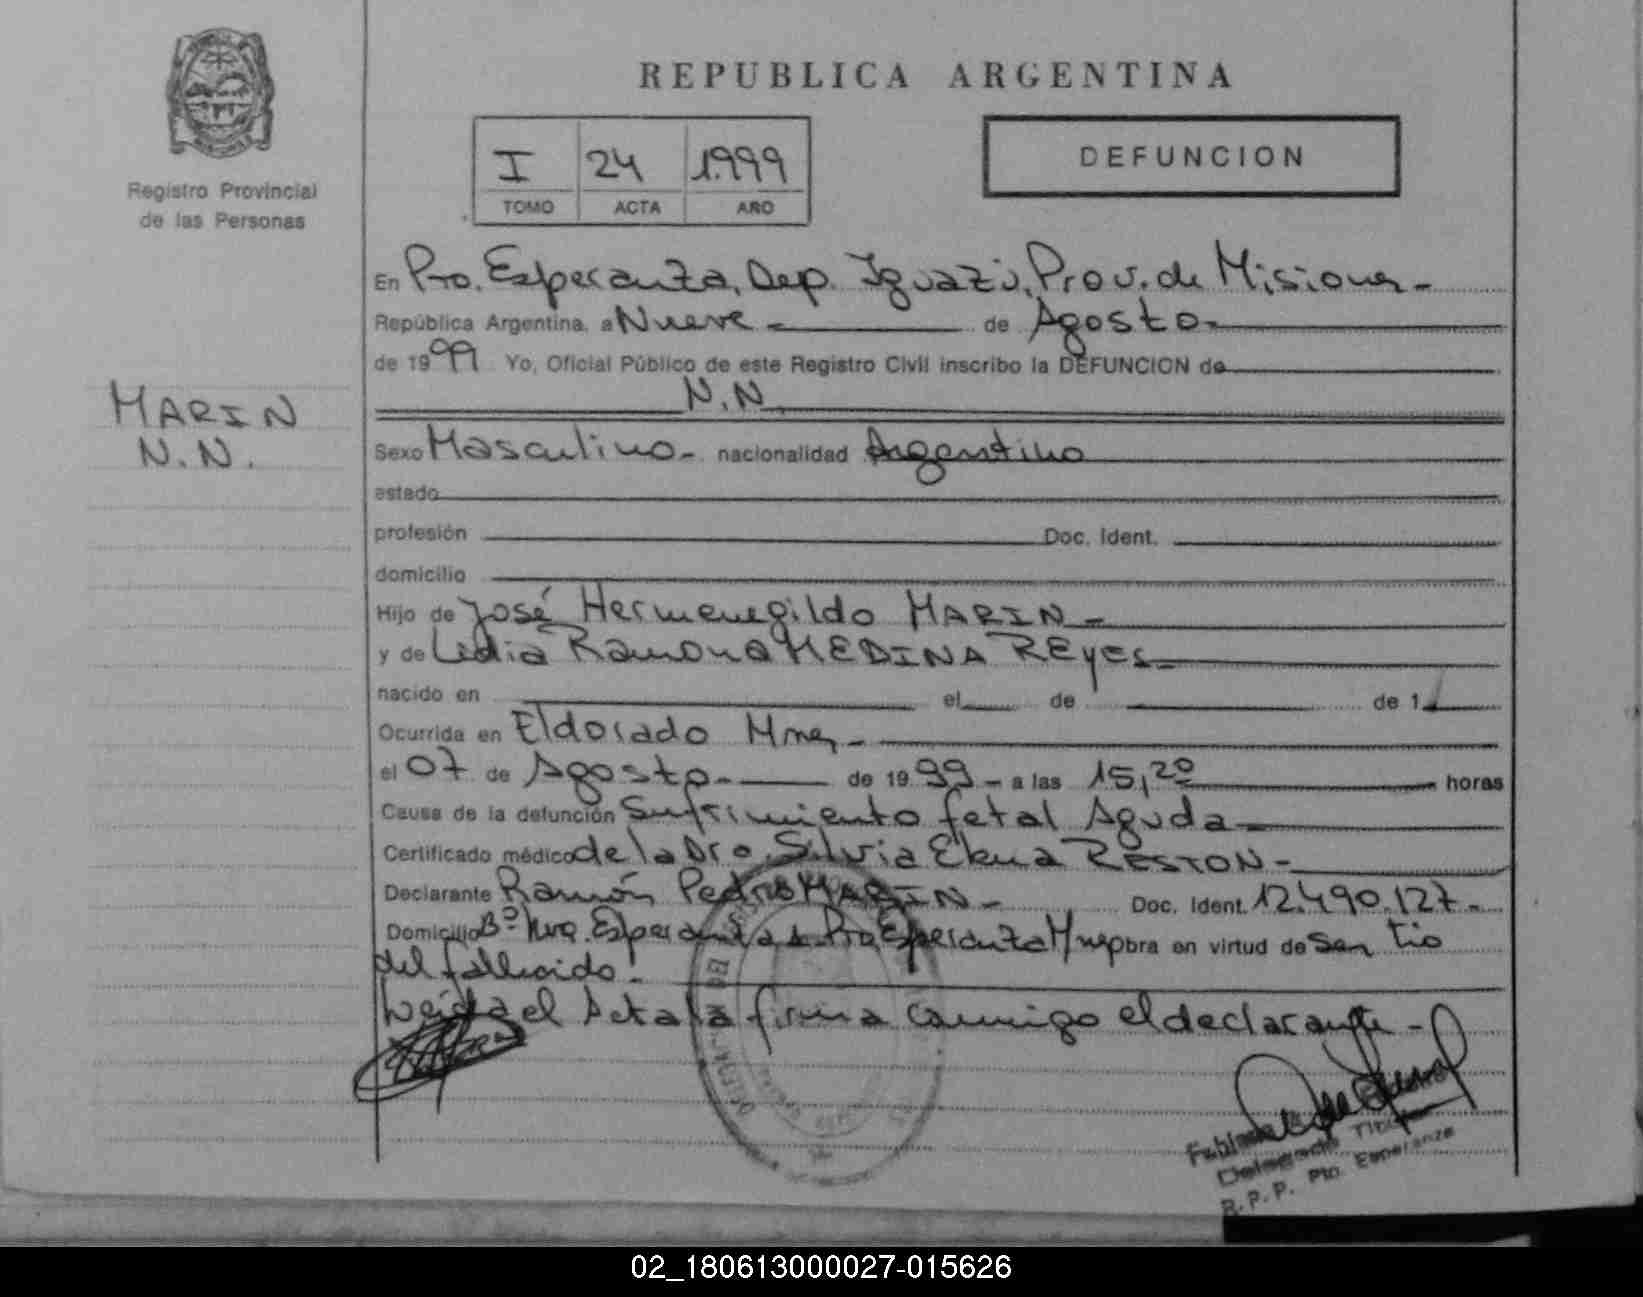 REPUBLICA ARGENTINA
I 24 1.999
TOMO ACTA AÑO
DEFUNCION
Registro Provincial
de las Personas
MARIN
N.N.
En Pto. Esperanza, Dep. Iguazú, Prov. de Misiones -
República Argentina, a Nueve - de Agosto -
de 1999 Yo, Oficial Público de este Registro Civil inscribo la DEFUNCION de
N.N.
Sexo Masculino - nacionalidad Argentino
estado
profesión Doc. Ident.
domicilio
Hijo de José Hermenegildo MARIN -
y de Ledia Ramona MEDINA REyes -
nacido en el de de 1
Ocurrida en Eldorado Mnes -
el 07 de Agosto - de 1999 - a las 15,20 horas
Causa de la defunción Sufrimiento fetal Aguda -
Certificado médico de la Dra. Silvia Elena RESTON -
Declarante Ramón Pedro MARIN - Doc. Ident. 12.490.127 -
Domicilio Bº Nva. Esperanza - Pto. Esperanza Mnes obra en virtud de ser tio
del fallecido -
Leida el Acta la firma conmigo el declarante -
Delegada
R.P.P. Pto. Esperanza
02_180613000027-015626